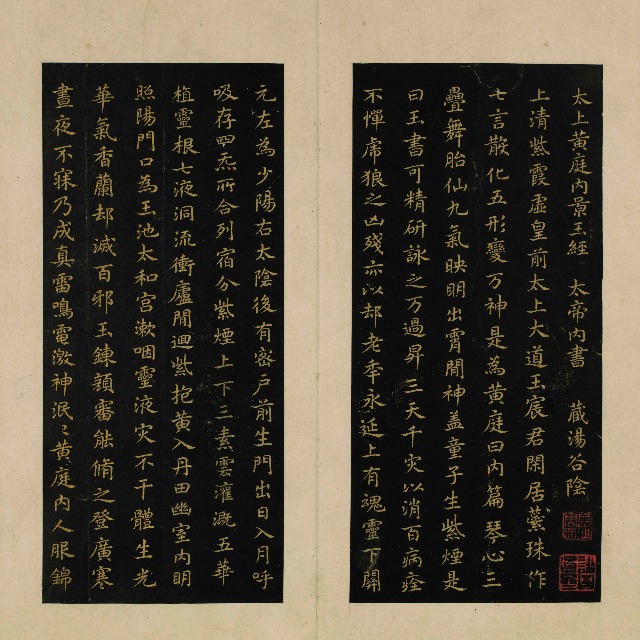 太上黃庭內景玉經 太帝內書 藏湯谷陰
上清紫霞虛皇前太上大道玉宸君閑居蘂珠作
七言散化五形變万神是為黃庭曰內篇琴心三
疊舞胎仙九氣映明出霄間神盖童子生紫煙是
曰玉書可精研詠之万過昇三天千灾以消百病痊
不憚席狼之凶殘亦以却老李永延上有魂靈下關
元左為少陽右太陰後有密戶前生門出日入月呼
吸存四炁所合列宿分紫煙上下三素雲灌溉五華
植靈根七液洞流衝廬間迴紫抱黃入丹田幽室內明
照陽門口為玉池太和宮漱咽靈液灾不干體生光
華氣香蘭却滅百邪玉鍊顏審能脩之登廣寒
晝夜不寐乃成真雷鳴電激神泯〻黃庭內人服錦